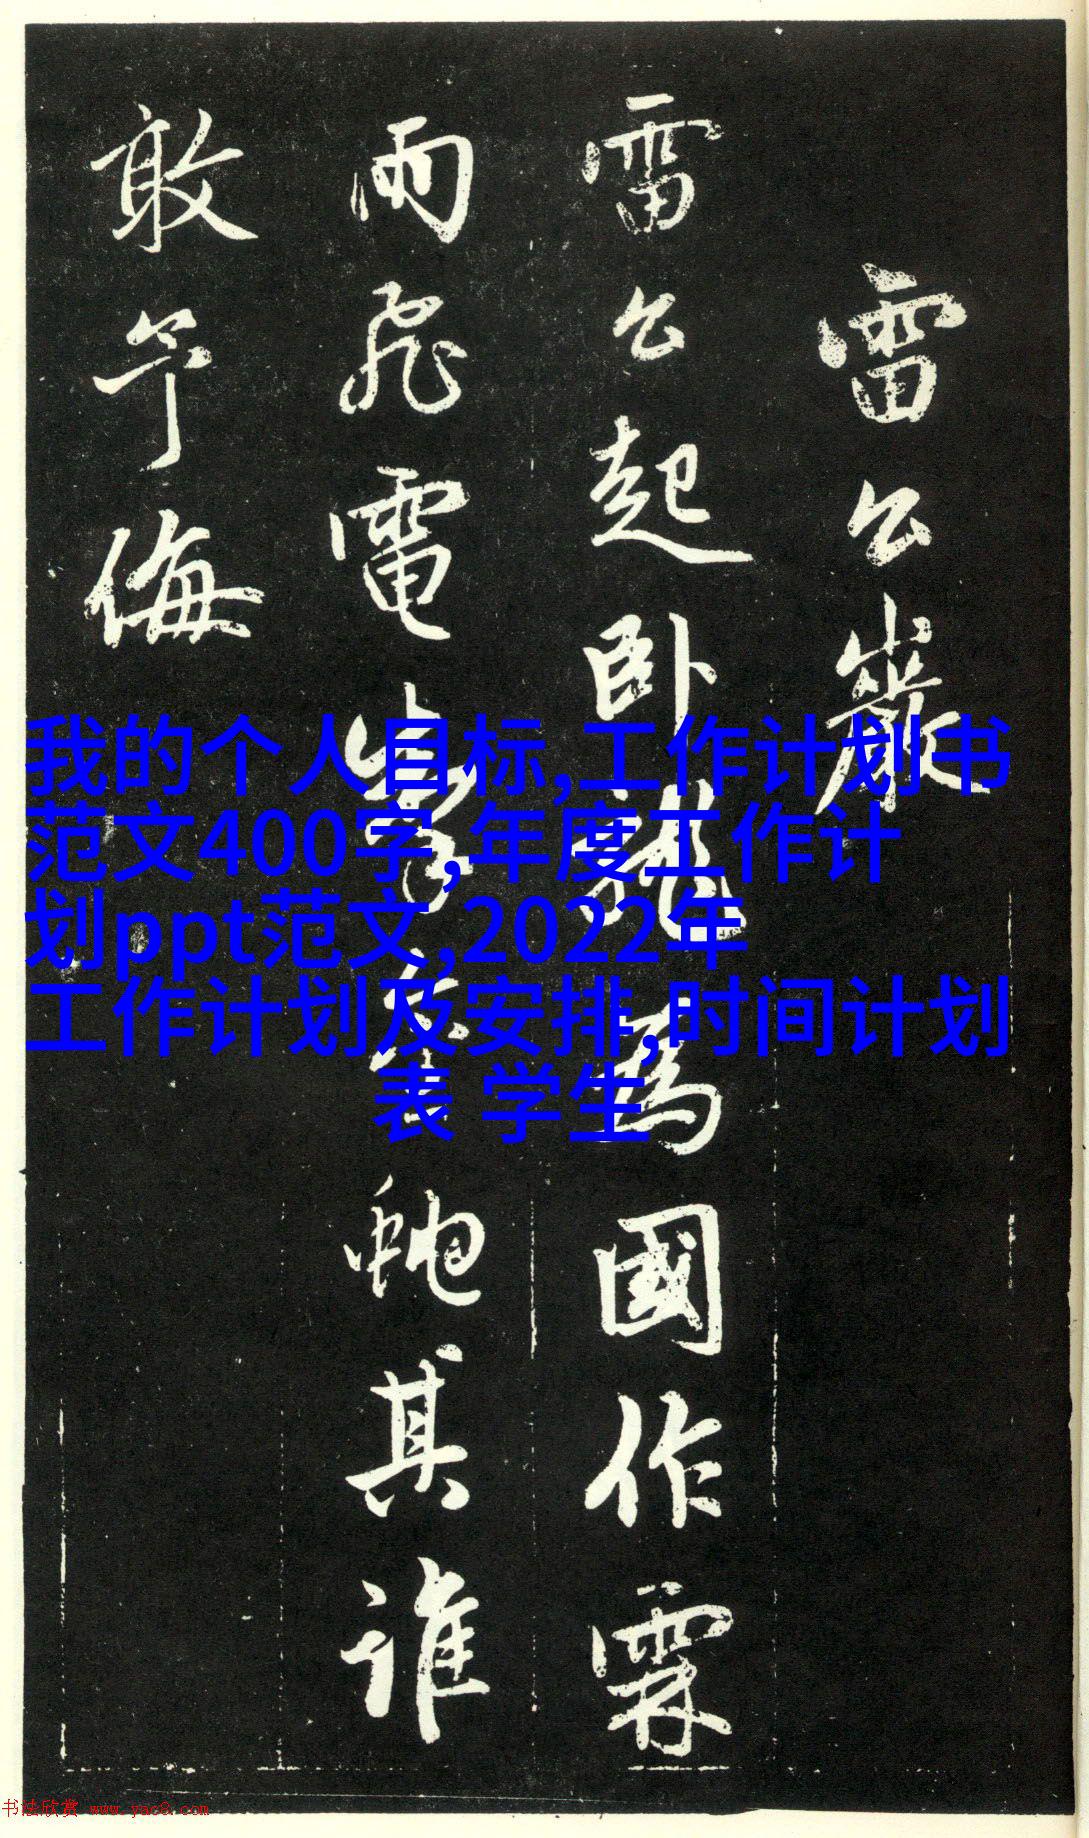 雷公巖
雷公起卧龍為國作霖
雨飛電掣金蛇其誰
敢予侮
我的个人目标,工作计划书
范文400字,年度工作计
划ppt范文,2022年
工作计划及安排,时间计划
表 学生
书法欣赏 www.yac8.com